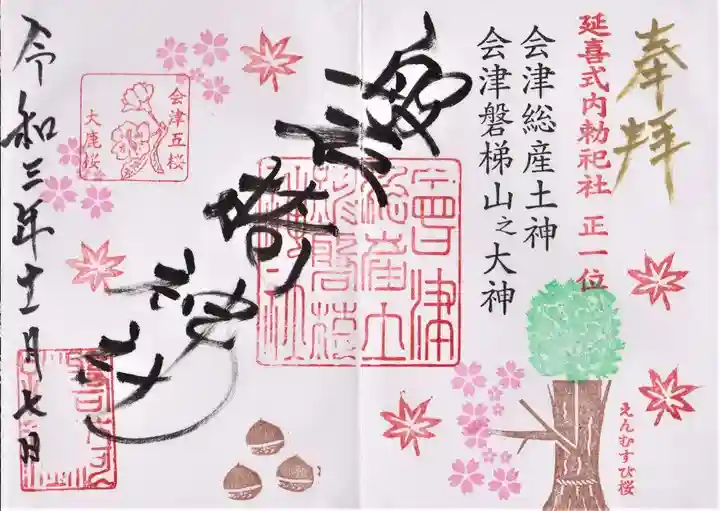 奉拝
延喜式内勅祀社 正一位
会津総産土神
会津磐梯山之大神
えんむすび桜
磐椅神社
會津
総産土
会津五桜
大鹿桜
令和三年十一月七日